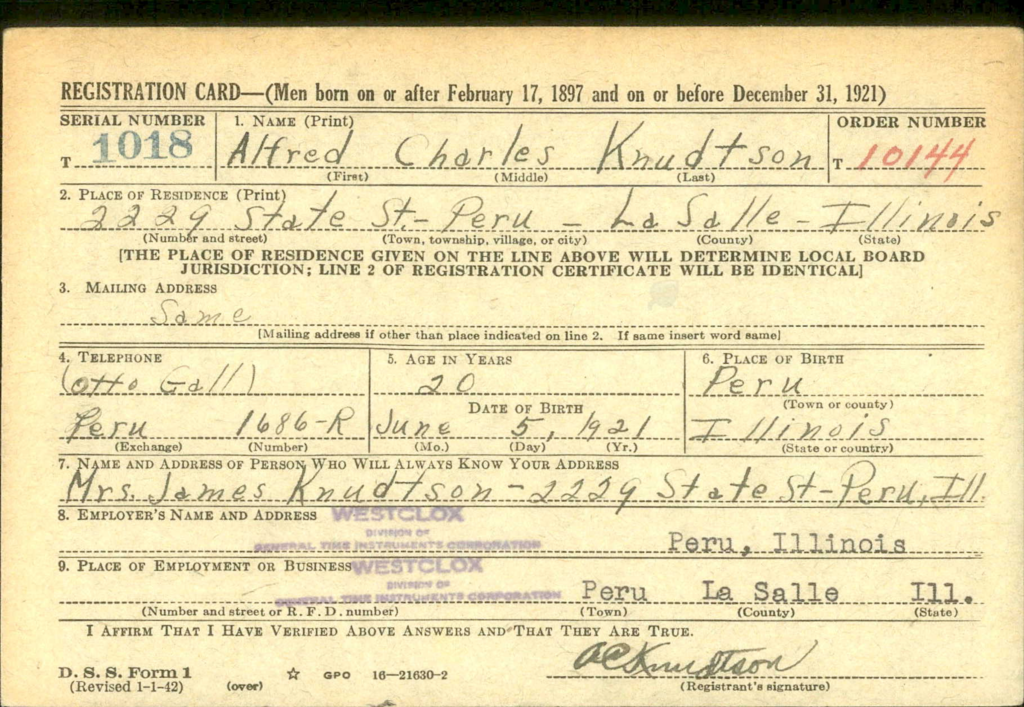 REGISTRATION CARD—(Men born on or after February 17, 1897 and on or before December 31, 1921)
SERIAL NUMBER 1. NAME (Print) ORDER NUMBER
T 1018 Alfred Charles Knudtson T 10144
(First) (Middle) (Last)
2. PLACE OF RESIDENCE (Print)
2229 State St- Peru - La Salle - Illinois
(Number and street) (Town, township, village, or city) (County) (State)
[THE PLACE OF RESIDENCE GIVEN ON THE LINE ABOVE WILL DETERMINE LOCAL BOARD
JURISDICTION; LINE 2 OF REGISTRATION CERTIFICATE WILL BE IDENTICAL]
3. MAILING ADDRESS
Same
[Mailing address if other than place indicated on line 2. If same insert word same]
4. TELEPHONE 5. AGE IN YEARS 6. PLACE OF BIRTH
(Otto Gall) 20 Peru
DATE OF BIRTH (Town or county)
Peru 1686-R June 5, 1921 Illinois
(Exchange) (Number) (Mo.) (Day) (Yr.) (State or country)
7. NAME AND ADDRESS OF PERSON WHO WILL ALWAYS KNOW YOUR ADDRESS
Mrs. James Knudtson - 2229 State St-Peru, Ill.
8. EMPLOYER'S NAME AND ADDRESS WESTCLOX
DIVISION OF
GENERAL TIME INSTRUMENTS CORPORATION Peru, Illinois
9. PLACE OF EMPLOYMENT OR BUSINESS WESTCLOX
DIVISION OF
GENERAL TIME INSTRUMENTS CORPORATION Peru La Salle Ill.
(Number and street or R. F. D. number) (Town) (County) (State)
I AFFIRM THAT I HAVE VERIFIED ABOVE ANSWERS AND THAT THEY ARE TRUE.
A C Knudtson
D. S. S. Form 1
(Revised 1-1-42) (over) ☆ GPO 16—21630-2 (Registrant's signature)